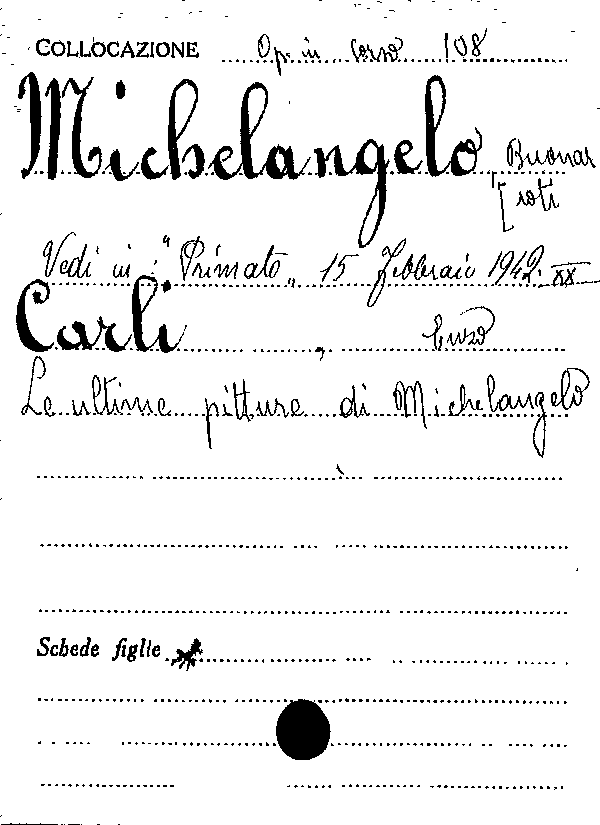 COLLOCAZIONE Op. in corso 108
Michelangelo, Buonar
[roti
Vedi in: "Primato„ 15 Febbraio 1942. XX
Carli, Enzo
Le ultime pitture di Michelangelo
Schede figlie